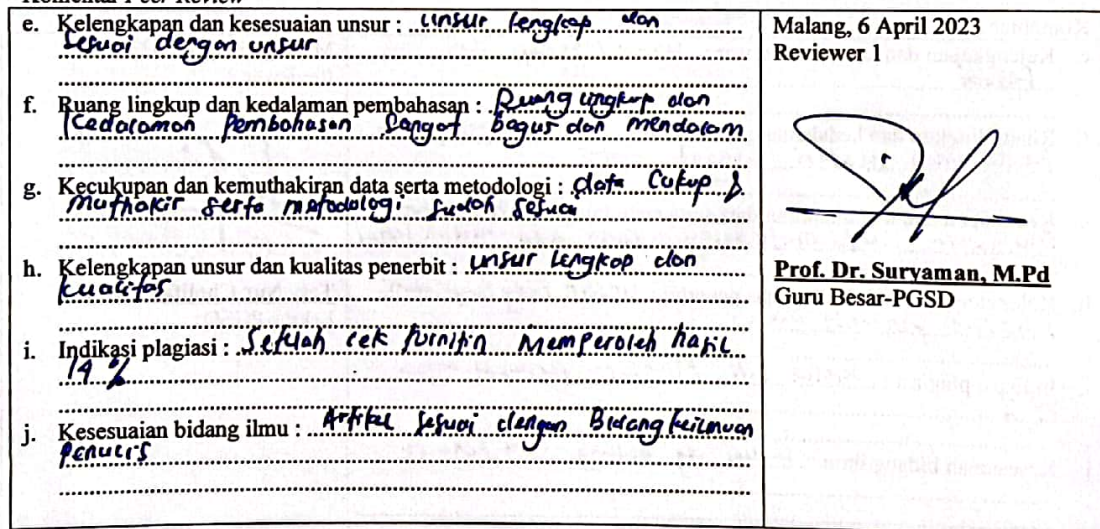 Komentar Peer Review
e. Kelengkapan dan kesesuaian unsur : unsur lengkap dan
sesuai dengan unsur
f. Ruang lingkup dan kedalaman pembahasan : Ruang lingkup dan
kedalaman pembahasan sangat bagus dan mendalam
g. Kecukupan dan kemuthakiran data serta metodologi : data cukup &
muthakir serta metodologi sudah sesuai
h. Kelengkapan unsur dan kualitas penerbit : unsur lengkap dan
kualitas
i. Indikasi plagiasi : Setelah cek turnitin memperoleh hasil
14 %
j. Kesesuaian bidang ilmu : Artikel sesuai dengan Bidang keilmuan
penulis
Malang, 6 April 2023
Reviewer 1
Prof. Dr. Suryaman, M.Pd
Guru Besar-PGSD